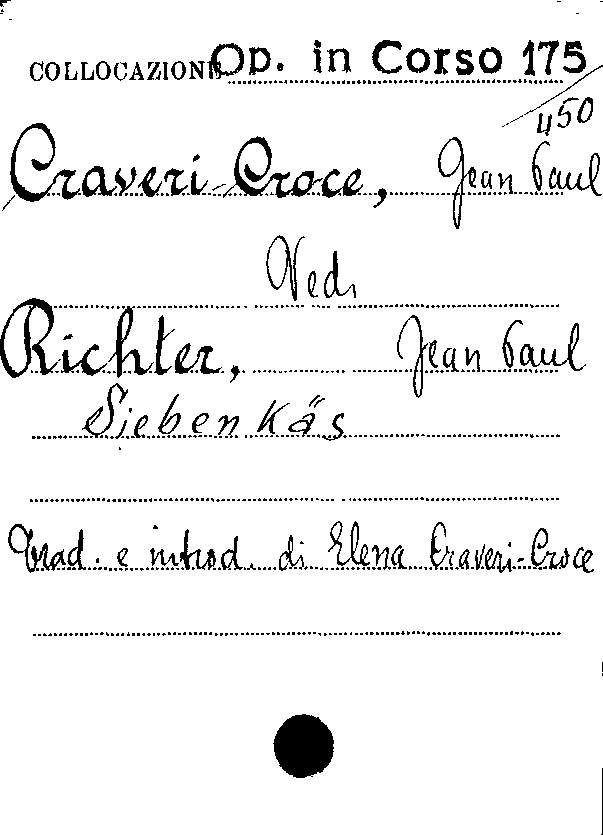 COLLOCAZIONE Op. in Corso 175
450
Craveri-Croce, Jean Paul
Vedi
Richter, Jean Paul
Siebenkäs
Trad. e introd. di Elena Craveri-Croce